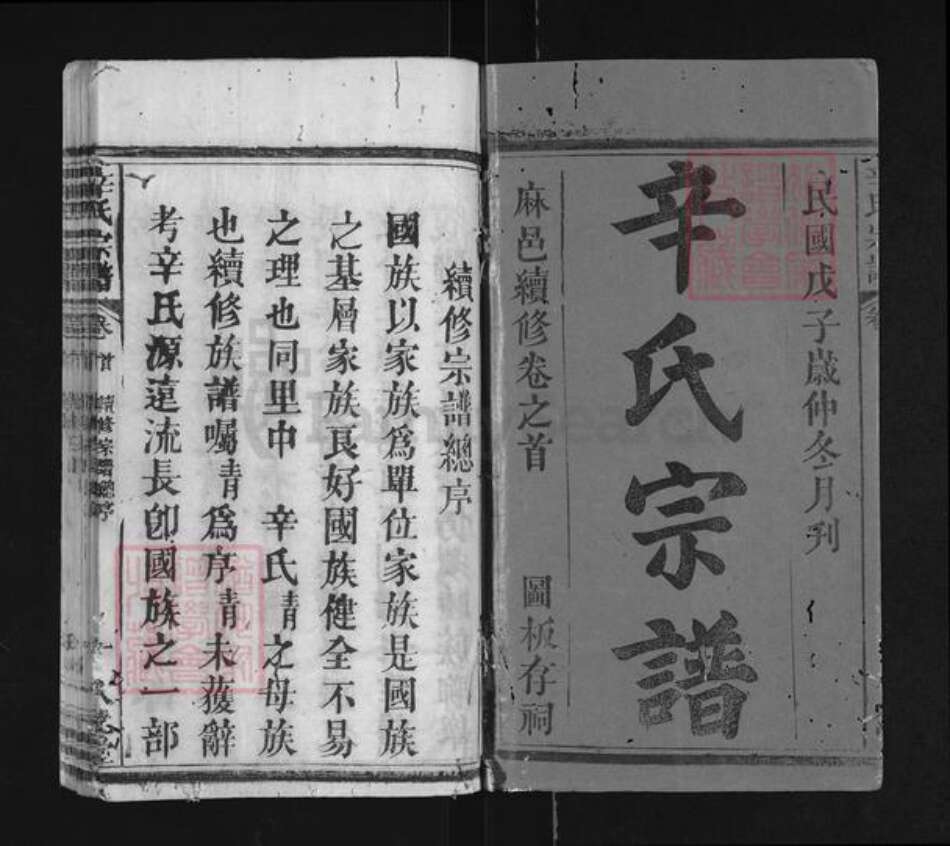 民國戊子歲仲冬月刋
辛氏宗譜
麻邑續修卷之首　圖板存祠
續修宗譜總序
國族以家族爲單位家族是國族
之基層家族良好國族健全不易
之理也同里中　辛氏靑之母族
也續修族譜囑靑爲序靑未獲辭
考辛氏源遠流長卽國族之一部
辛氏宗譜　卷首　續修宗譜總序　一